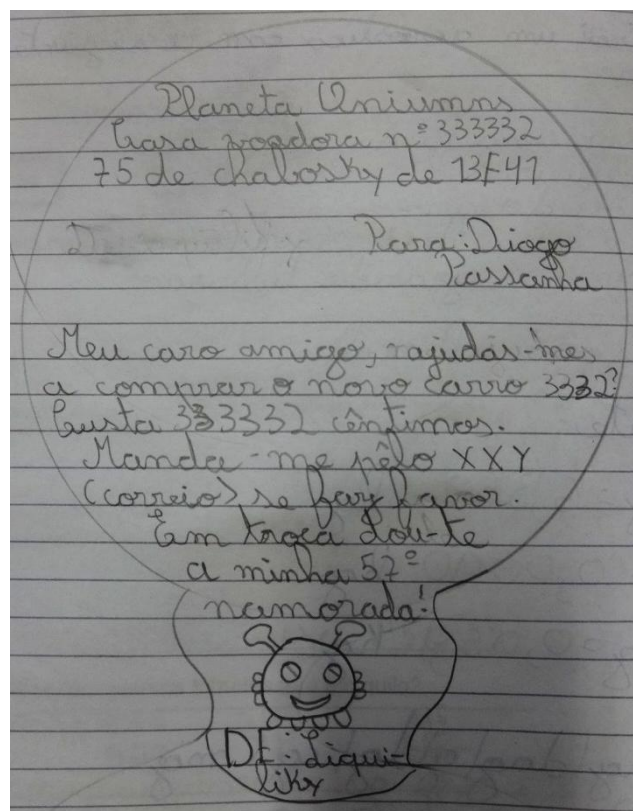 Planeta Uniumns
Casa voadora nº 333332
75 de chabosky de 13E41
Para: Diogo
Passanha
Meu caro amigo, rajudas-mes
a comprar o novo carro 3332?
Custa 333332 cêntimos.
Manda-me pêlo XXY
(correio) se faz favor.
Em troca dou-te
a minha 57º
namorada!
DE: Liqui-
likx